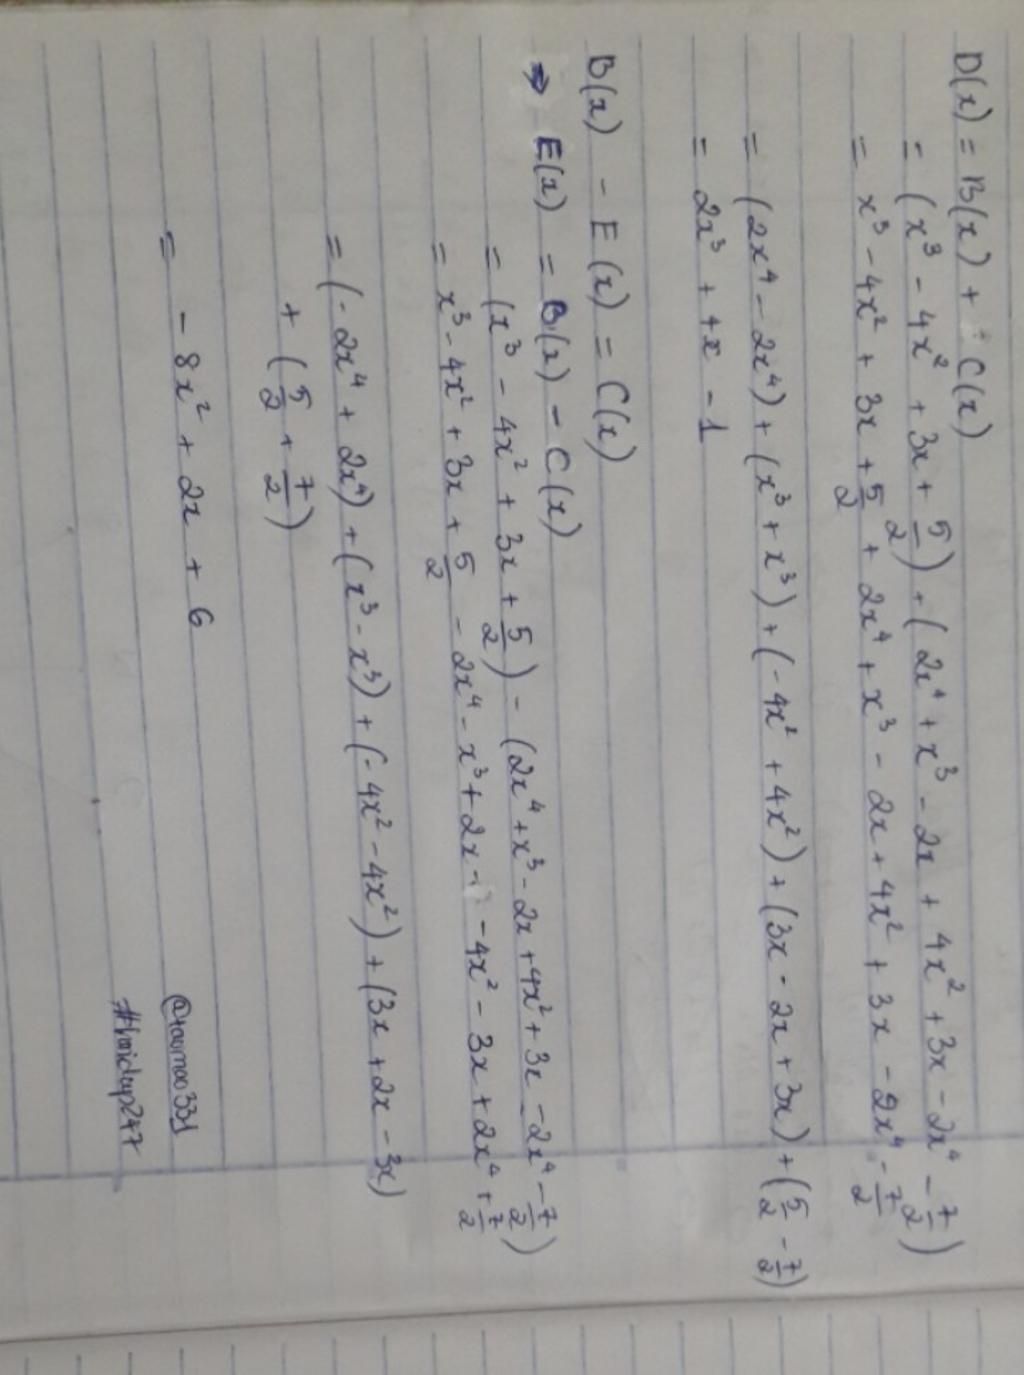 D(x) = B(x) + C(x)
= (x³ - 4x² + 3x + 5/2) + (2x⁴ + x³ - 2x + 4x² + 3x - 2x⁴ - 7/2)
= x³ - 4x² + 3x + 5/2 + 2x⁴ + x³ - 2x + 4x² + 3x - 2x⁴ - 7/2
= (2x⁴ - 2x⁴) + (x³ + x³) + (-4x² + 4x²) + (3x - 2x + 3x) + (5/2 - 7/2)
= 2x³ + 4x - 1
B(x) - E(x) = C(x)
⇒ E(x) = B(x) - C(x)
= (x³ - 4x² + 3x + 5/2) - (2x⁴ + x³ - 2x + 4x² + 3x - 2x⁴ - 7/2)
= x³ - 4x² + 3x + 5/2 - 2x⁴ - x³ + 2x - - 4x² - 3x + 2x⁴ + 7/2
= (-2x⁴ + 2x⁴) + (x³ - x³) + (-4x² - 4x²) + (3x + 2x - 3x)
+ (5/2 + 7/2)
= - 8x² + 2x + 6